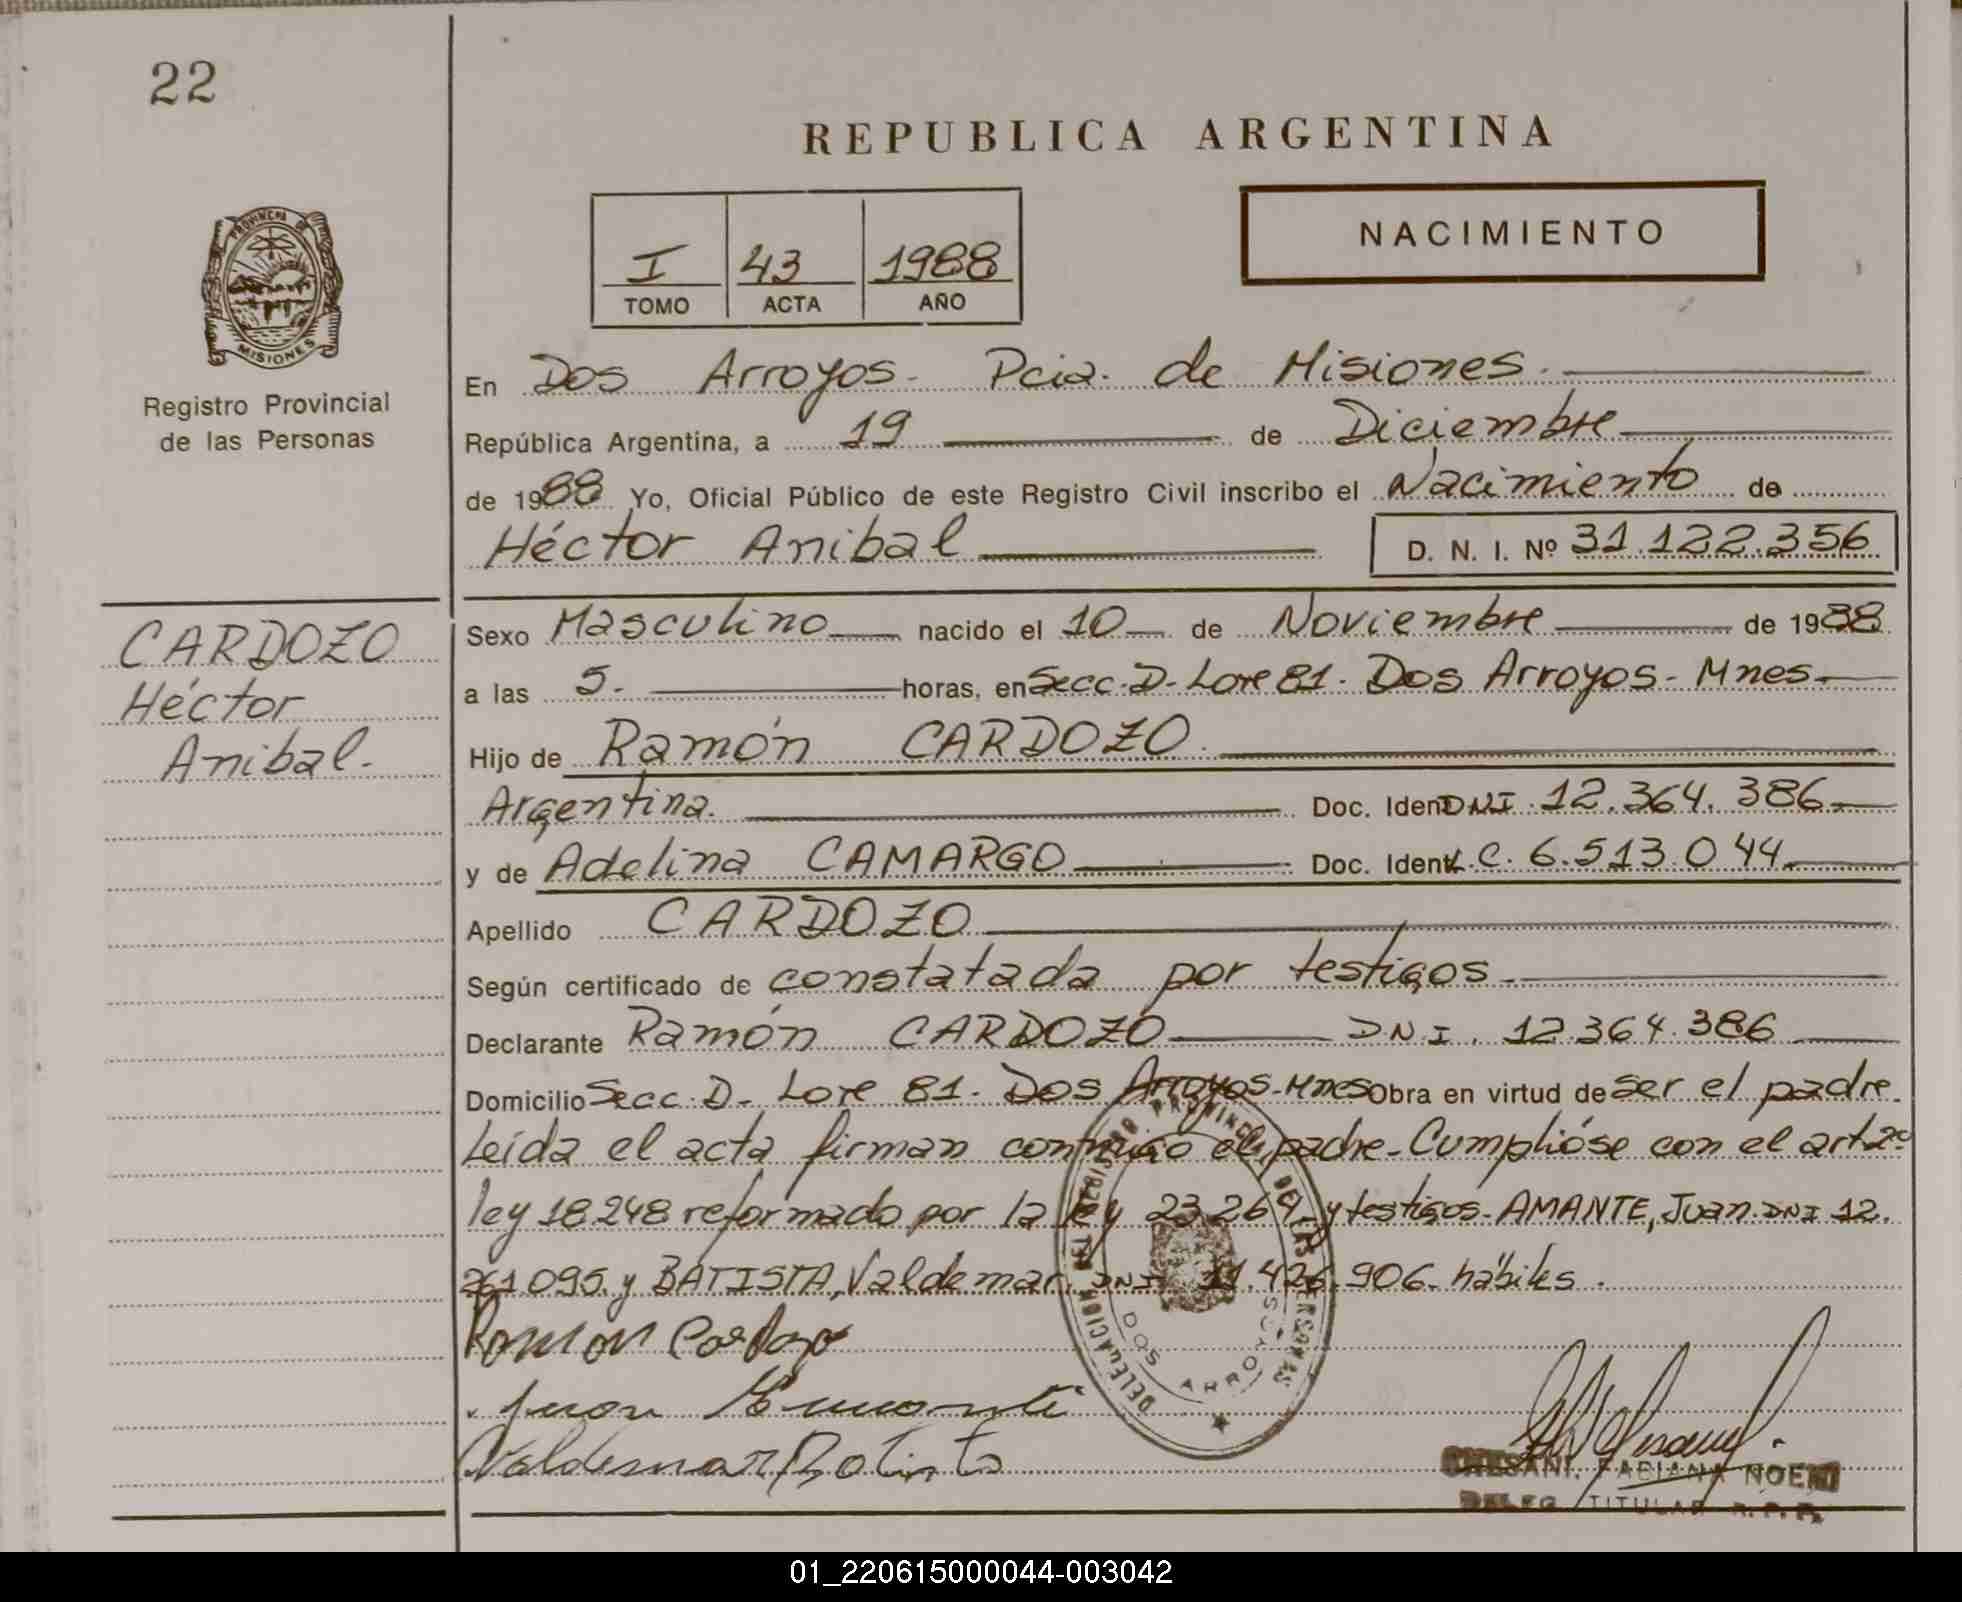 22
REPUBLICA ARGENTINA
PROVINCIA DE
MISIONES
Registro Provincial
de las Personas
I 43 1988
TOMO ACTA AÑO
NACIMIENTO
En Dos Arroyos - Pcia. de Misiones.
República Argentina, a 19 de Diciembre
de 1988 Yo, Oficial Público de este Registro Civil inscribo el Nacimiento de
Héctor Anibal D. N. I. Nº 31.122.356
CARDOZO
Héctor
Anibal.
Sexo Masculino nacido el 10 de Noviembre de 1988
a las 5. horas, en Secc. D- Lote 81. Dos Arroyos - Mnes.
Hijo de Ramón CARDOZO.
Argentina. Doc. Ident DNI. 12.364.386
y de Adelina CAMARGO Doc. Ident L.C. 6.513.044
Apellido CARDOZO
Según certificado de constatada por testigos.
Declarante Ramón CARDOZO DNI. 12.364.386
Domicilio Secc. D- Lote 81. Dos Arroyos-Mnes Obra en virtud de ser el padre.
Leída el acta firman conmigo el padre - Cumplióse con el art 2º
ley 18.248 reformado por la ley 23.264 y testigos - AMANTE, Juan DNI 12.
261.095 y BATISTA, Valdemar, DNI 11.426.906 - hábiles.
Ramon Cardozo
Juan
Valdemar Batista
DELEGACION DEL REGISTRO PROVINCIAL DE LAS PERSONAS
DOS ARROYOS
FABIANA NOEMI
DELEG. TITULAR R.P.P.
01_220615000044-003042